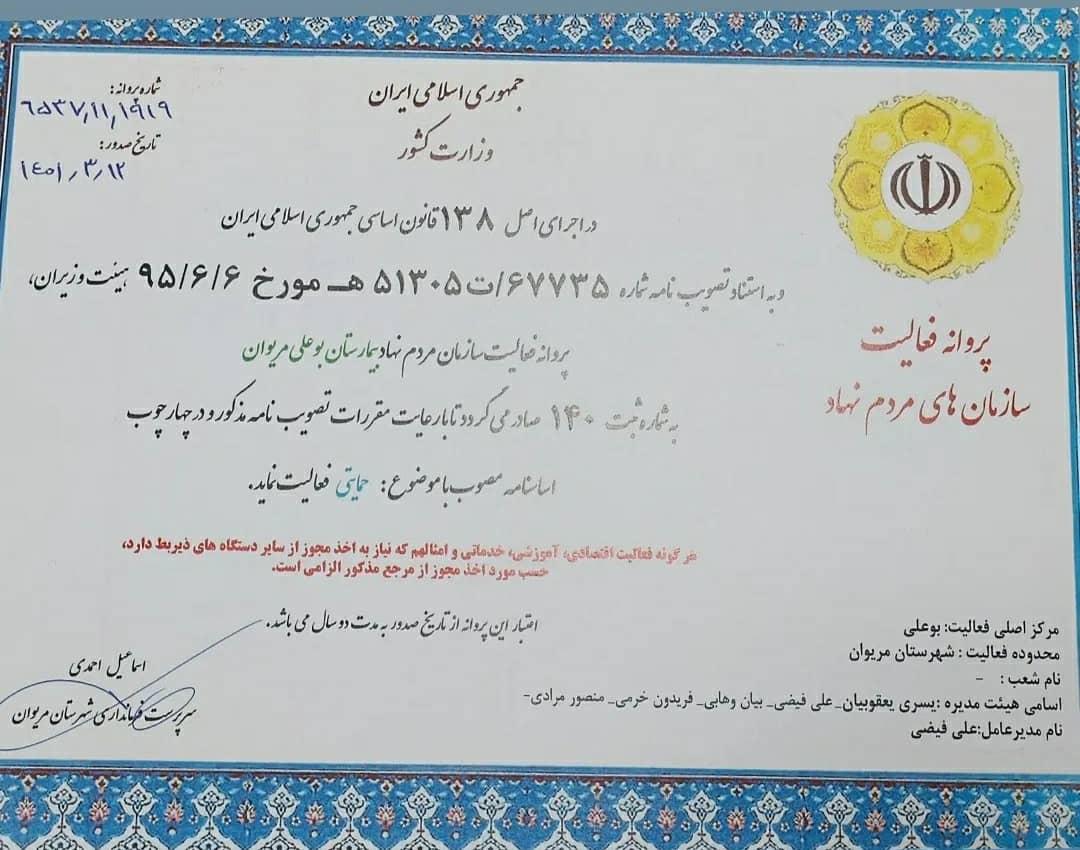 جمهوری اسلامی ایران
وزارت کشور
شماره پروانه:
۶۵۳۷/۱۱/۱۹۱۹
تاریخ صدور:
۱۴۰۱/۳/۱۲
در اجرای اصل ۱۳۸ قانون اساسی جمهوری اسلامی ایران
و به استناد تصویب نامه شماره ۶۷۷۳۵/ت۵۱۳۰۵ هـ مورخ ۹۵/۶/۶ هیئت وزیران،
پروانه فعالیت سازمان مردم نهاد بیمارستان بوعلی مریوان
به شماره ثبت ۱۴۰ صادر می گردد تا با رعایت مقررات تصویب نامه مذکور و در چهارچوب
اساسنامه مصوب با موضوع: حمایتی فعالیت نماید.
پروانه فعالیت
سازمان های مردم نهاد
هر گونه فعالیت اقتصادی، آموزشی، خدماتی و امثالهم که نیاز به اخذ مجوز از سایر دستگاه های ذیربط دارد،
حسب مورد اخذ مجوز از مرجع مذکور الزامی است.
اعتبار این پروانه از تاریخ صدور به مدت دو سال می باشد.
مرکز اصلی فعالیت: بوعلی
محدوده فعالیت : شهرستان مریوان
نام شعب : -
اسامی هیئت مدیره :یسری یعقوبیان_ علی فیضی_ بیان وهابی_ فریدون خرمی_ منصور مرادی-
نام مدیرعامل:علی فیضی
اسماعیل احمدی
سرپرست فرمانداری شهرستان مریوان